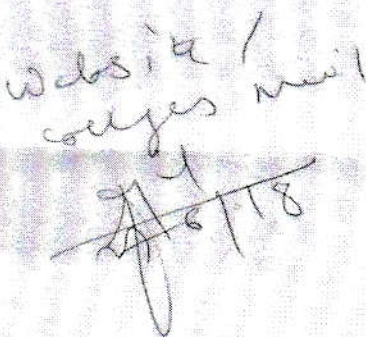 Website /
colleges mail
6/18